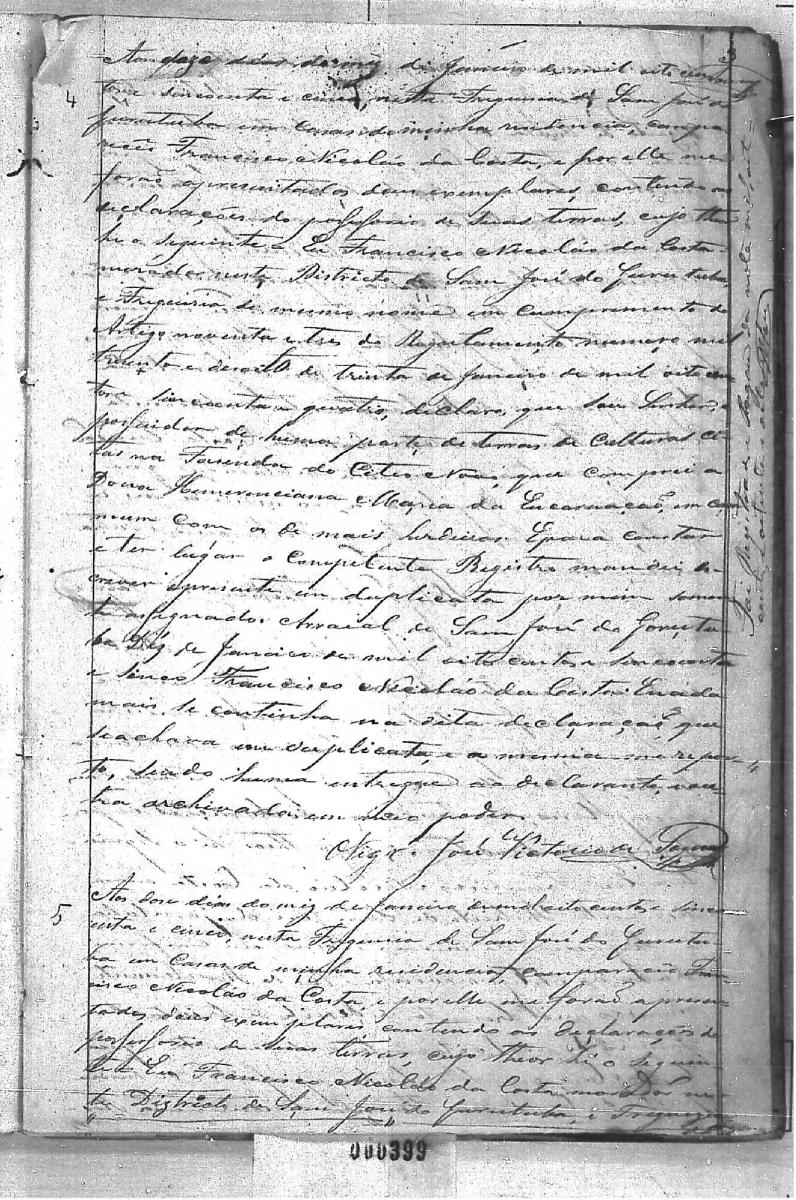 3
4
Aos doze dias do mez de Janeiro de mil oito centos
e sincoenta e cinco, nesta Freguesia de Sam José do
Gurutuba em Casas de minha residencia, compa
receo Francisco Nicoláo da Costa, e por elle me
forão apresentados dous exemplares, contendo as
declarações do possessorio de suas terras, cujo theor
he o seguinte Eu Francisco Nicoláo da Costa
morador neste Districto de Sam José do Gurutuba
e Freguesia do mesmo nome em cumprimento do
Artigo noventa e tres do Regulamento numero mil
trezento e desoito de trinta de Janeiro de mil oito cen
tos e sincoenta e quatro, declaro, que sou Senhor, e
possuidor de huma parte de terras de Culturas ci
tas na Fazenda do que comprei a
Dona Hemerenciana Maria da Encarnação, em com
mum com os de mais herdeiros. E para constar
e ter lugar o Competente Registro mandei es
crever o presente em duplicata por mim somen
te assignado. Arraial de Sam José do Gorutu
ba Dez de Janeiro de mil oito centos e sincoenta
e sinco Francisco Nicoláo da Costa. E nada
mais se continha na dita declaração, que
se achava em duplicata, e a mesma me repor
to, sendo huma entregue ao declarante, e ou
tra archivada em meo poder.
O Vigr.º José Victorio de
5
Aos doze dias do mez de Janeiro de mil oito centos e sinco
enta e cinco, nesta Freguesia de Sam José do Gurutu
ba em Casas de minha residencia, compareceo Fran
cisco Nicoláo da Costa, e por elle me forão apresen
tados dous exemplares contendo as declarações do
possessorio de suas terras, cujo theor hé o seguin
te Eu Francisco Nicoláo da Costa morador nes
te Districto de Sam José do Gurutuba, e Freguezia
Foi Registrado e pagou da nota mil oit
000399